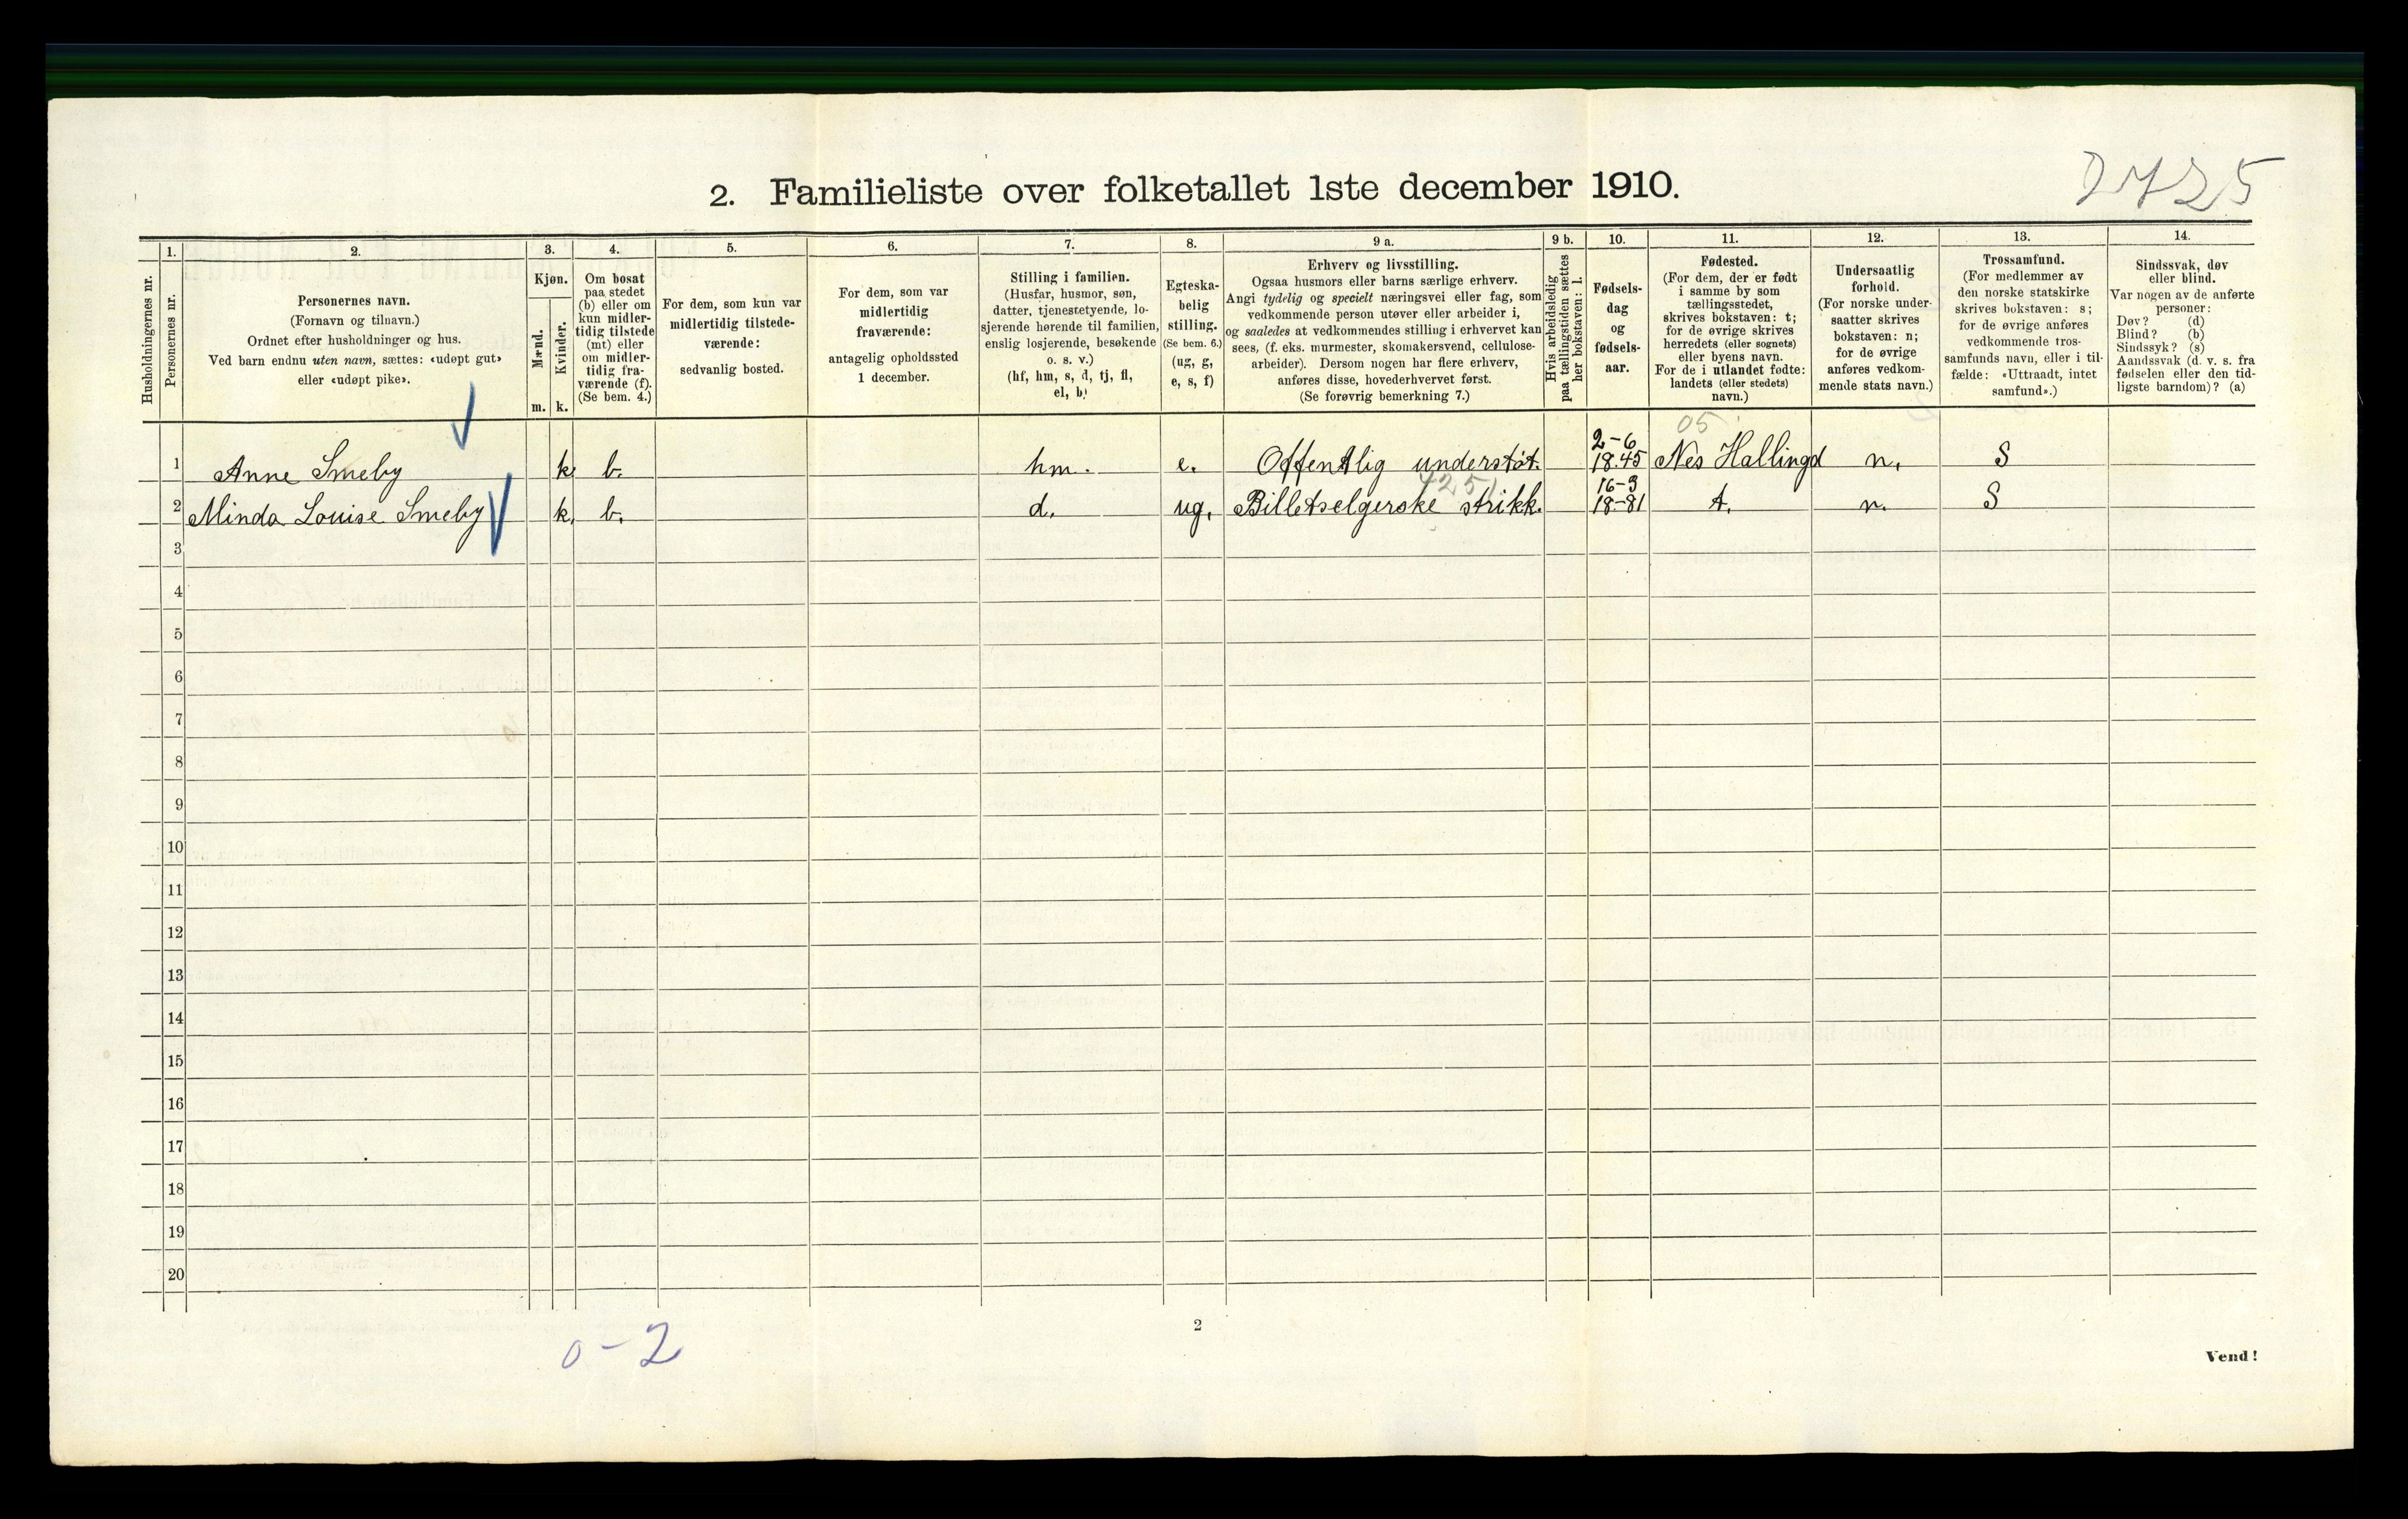 2725
2. Familieliste over folketallet 1ste december 1910.
Husholdningernes nr.
1.
Personernes nr.
2.
Personernes navn.
(Fornavn og tilnavn.)
Ordnet efter husholdninger og hus.
Ved barn endnu uten navn, sættes: «udøpt gut»
eller «udøpt pike».
3.
Kjøn.
Mænd.
Kvinder.
m. k.
4.
Om bosat
paa stedet
(b) eller om
kun midler-
tidig tilstede
(mt) eller
om midler-
tidig fra-
værende (f).
(Se bem. 4.)
5.
For dem, som kun var
midlertidig tilstede-
værende:
sedvanlig bosted.
6.
For dem, som var
midlertidig
fraværende:
antagelig opholdssted
1 december.
7.
Stilling i familien.
(Husfar, husmor, søn,
datter, tjenestetyende, lo-
sjerende hørende til familien,
enslig losjerende, besøkende
o. s. v.)
(hf, hm, s, d, tj, fl,
el, b)
8.
Egteska-
belig
stilling.
(Se bem. 6.)
(ug, g,
e, s, f)
9 a.
Erhverv og livsstilling.
Ogsaa husmors eller barns særlige erhverv.
Angi tydelig og specielt næringsvei eller fag, som
vedkommende person utøver eller arbeider i,
og saaledes at vedkommendes stilling i erhvervet kan
sees, (f. eks. murmester, skomakersvend, cellulose-
arbeider). Dersom nogen har flere erhverv,
anføres disse, hovederhvervet først.
(Se forøvrig bemerkning 7.)
9 b.
Hvis arbeidsledig
paa tællingstiden sættes
her bokstaven: l.
10.
Fødsels-
dag
og
fødsels-
aar.
11.
Fødested.
(For dem, der er født
i samme by som
tællingsstedet,
skrives bokstaven: t;
for de øvrige skrives
herredets (eller sognets)
eller byens navn.
For de i utlandet fødte:
landets (eller stedets)
navn.)
12.
Undersaatlig
forhold.
(For norske under-
saatter skrives
bokstaven: n;
for de øvrige
anføres vedkom-
mende stats navn.)
13.
Trossamfund.
(For medlemmer av
den norske statskirke
skrives bokstaven: s;
for de øvrige anføres
vedkommende tros-
samfunds navn, eller i til-
fælde: «Uttraadt, intet
samfund».)
14.
Sindssvak, døv
eller blind.
Var nogen av de anførte
personer:
Døv? (d)
Blind? (b)
Sindssyk? (s)
Aandssvak (d. v. s. fra
fødselen eller den tid-
ligste barndom)? (a)
05
1 Anne Smeby k. b. hm. e. Offentlig understøt. 2-6 18.45 Nes Hallingd n. S
4251
2 Minda Louise Smeby k. b. d. ug. Billetselgerske strikk. 16-3 18-81 t. n. S
3
4
5
6
7
8
9
10
11
12
13
14
15
16
17
18
19
20
0-2
2
Vend!